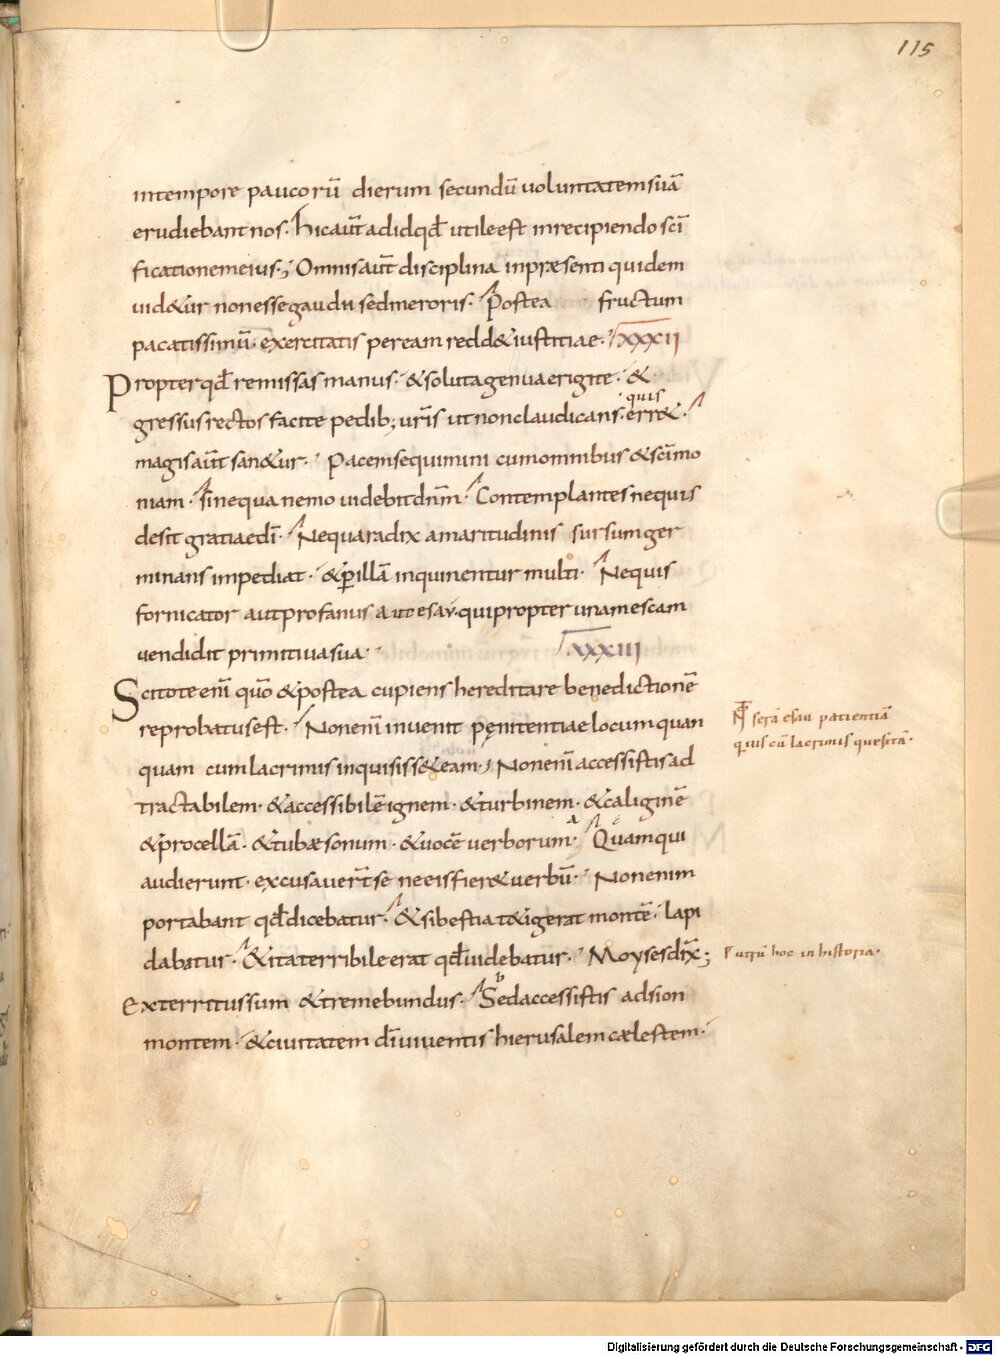 115
in tempore paucorū dierum secundū uoluntatem suā
erudiebant nos. hic aut̄ ad id qđ utile est in recipiendo sc̄i
ficationem eius; Omnis aut̄ disciplina in præsenti quidem
uid&ur non esse gaudii sed meroris. Postea fructum
pacatissimū. exercitatis per eam redd& iustitiae. XXXII
Propter qđ remissas manus. & soluta genua erigite. &
gressus rectos facite pedib; ur̄is ut non claudicans quis err&.
magis aut̄ san&ur. Pacem sequimini cum omnibus & sc̄imo
niam. sine qua nemo uidebit dn̄m. Contemplantes nequis
desit gratiae dī. Nequa radix amaritudinis sursum ger
minans impediat. & ꝑ illā inquinentur multi. Nequis
fornicator aut profanus aut esau. qui propter unam escam
uendidit primitiua sua. XXXIII
Scitote enī quō & postea cupiens hereditare benedictionē
reprobatus est. Non enī inuenit pęnitentiae locum quan
quam cum lacrimis inquisiss& eam; Non enī accessistis ad
tractabilem. & accessibilē ignem. & turbinem. & caliginē
& procellā. & tubæ sonum. & uocē uerborum. Quam qui
audierunt. excusauer̄t se ne eis fier& uerbū. Non enim
portabant qđ dicebatur. & si bestia t&igerat montē. lapi
dabatur. & ita terribile erat qđ uidebatur. Moyses dix̄;
Exterritus sum & tremebundus. Sed accessistis ad sion
montem. & ciuitatem dī uiuentis hierusalem cælestem.
serā esau patientiā
quis cū lacrimis quesitā.
utrū hoc in historia.
Digitalisierung gefördert durch die Deutsche Forschungsgemeinschaft - DFG